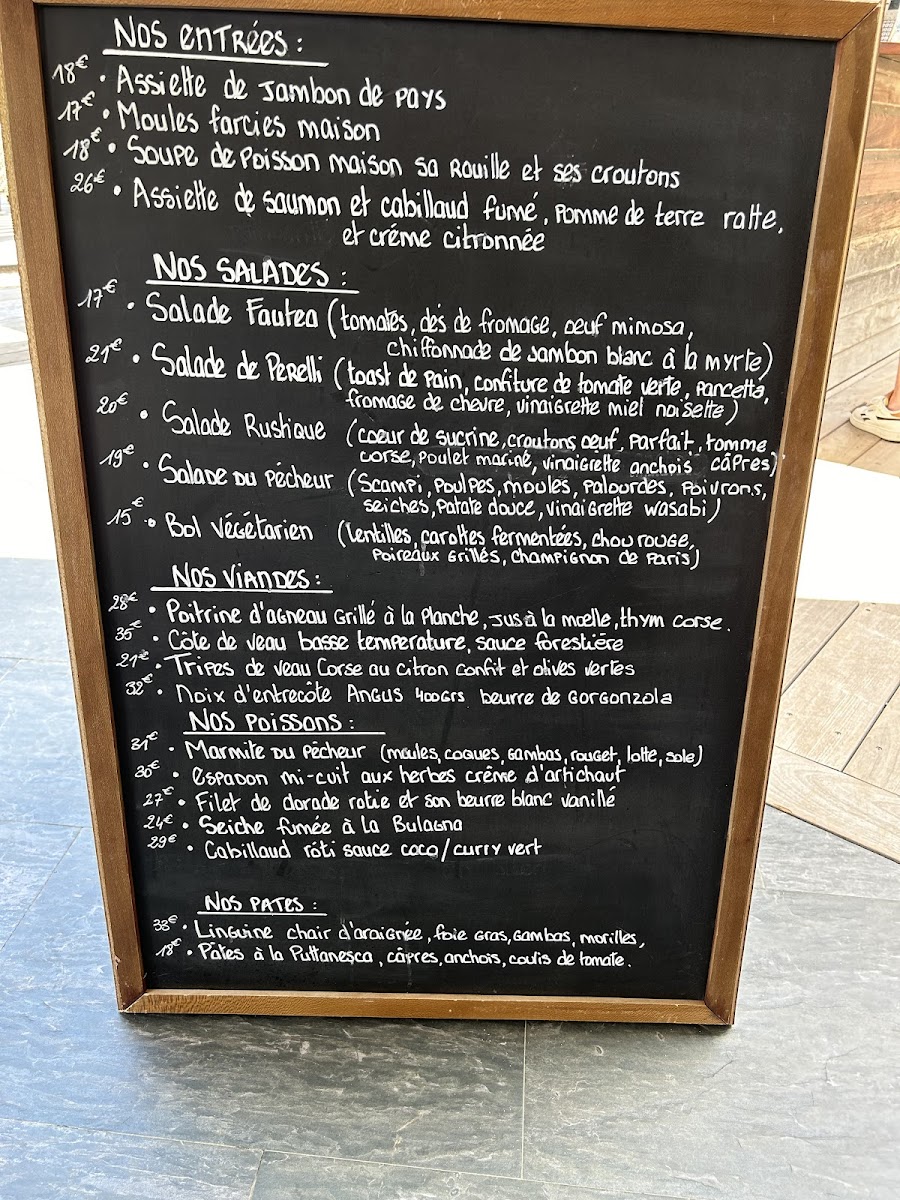 Nos entrées :
18€ • Assiette de Jambon de pays
17€ • Moules farcies maison
18€ • Soupe de Poisson maison sa Rouille et ses croutons
26€ • Assiette de saumon et cabillaud fumé, pomme de terre ratte,
et créme citronnée
Nos SALADES :
17€ • Salade Fautea (tomates, dés de fromage, oeuf mimosa,
chiffonnade de Jambon blanc à la myrte)
21€ • Salade de Perelli (toast de Pain, confiture de tomate verte, pancetta,
fromage de chevre, vinaigrette miel noisette)
20€ • Salade Rustique (coeur de sucrine, croutons oeuf, parfait, tomme
corse, poulet mariné, vinaigrette anchois câpres)
19€ • Salade du pécheur (Scampi, Poulpes, moules, palourdes, poivrons,
seiches, patate douce, vinaigrette wasabi)
15€ • Bol végétarien (lentilles, carottes fermentées, chou rouge,
poireaux Grillés, champignon de Paris)
Nos Viandes :
28€ • Poitrine d'agneau Grillé à la Planche, Jus à la moelle, thym corse.
35€ • Côte de veau basse temperature, sauce forestière
21€ • Tripes de veau Corse au Citron confit et olives vertes
32€ • Noix d'entrecôte Angus 400Grs beurre de Gorgonzola
Nos Poissons :
31€ • Marmite du Pêcheur (moules, coques, Gambas, rouget, lotte, sole)
30€ • espadon mi-cuit aux herbes crème d'artichaut
27€ • Filet de dorade rotie et son beurre blanc vanillé
24€ • Seiche fumée à la Bulagna
29€ • Cabillaud rôti sauce coco/curry vert
Nos pates :
33€ • Linguine chair d'araignée, foie Gras, Gambas, morilles,
18€ • Pâtes à la Puttanesca, câpres, anchois, coulis de tomate.